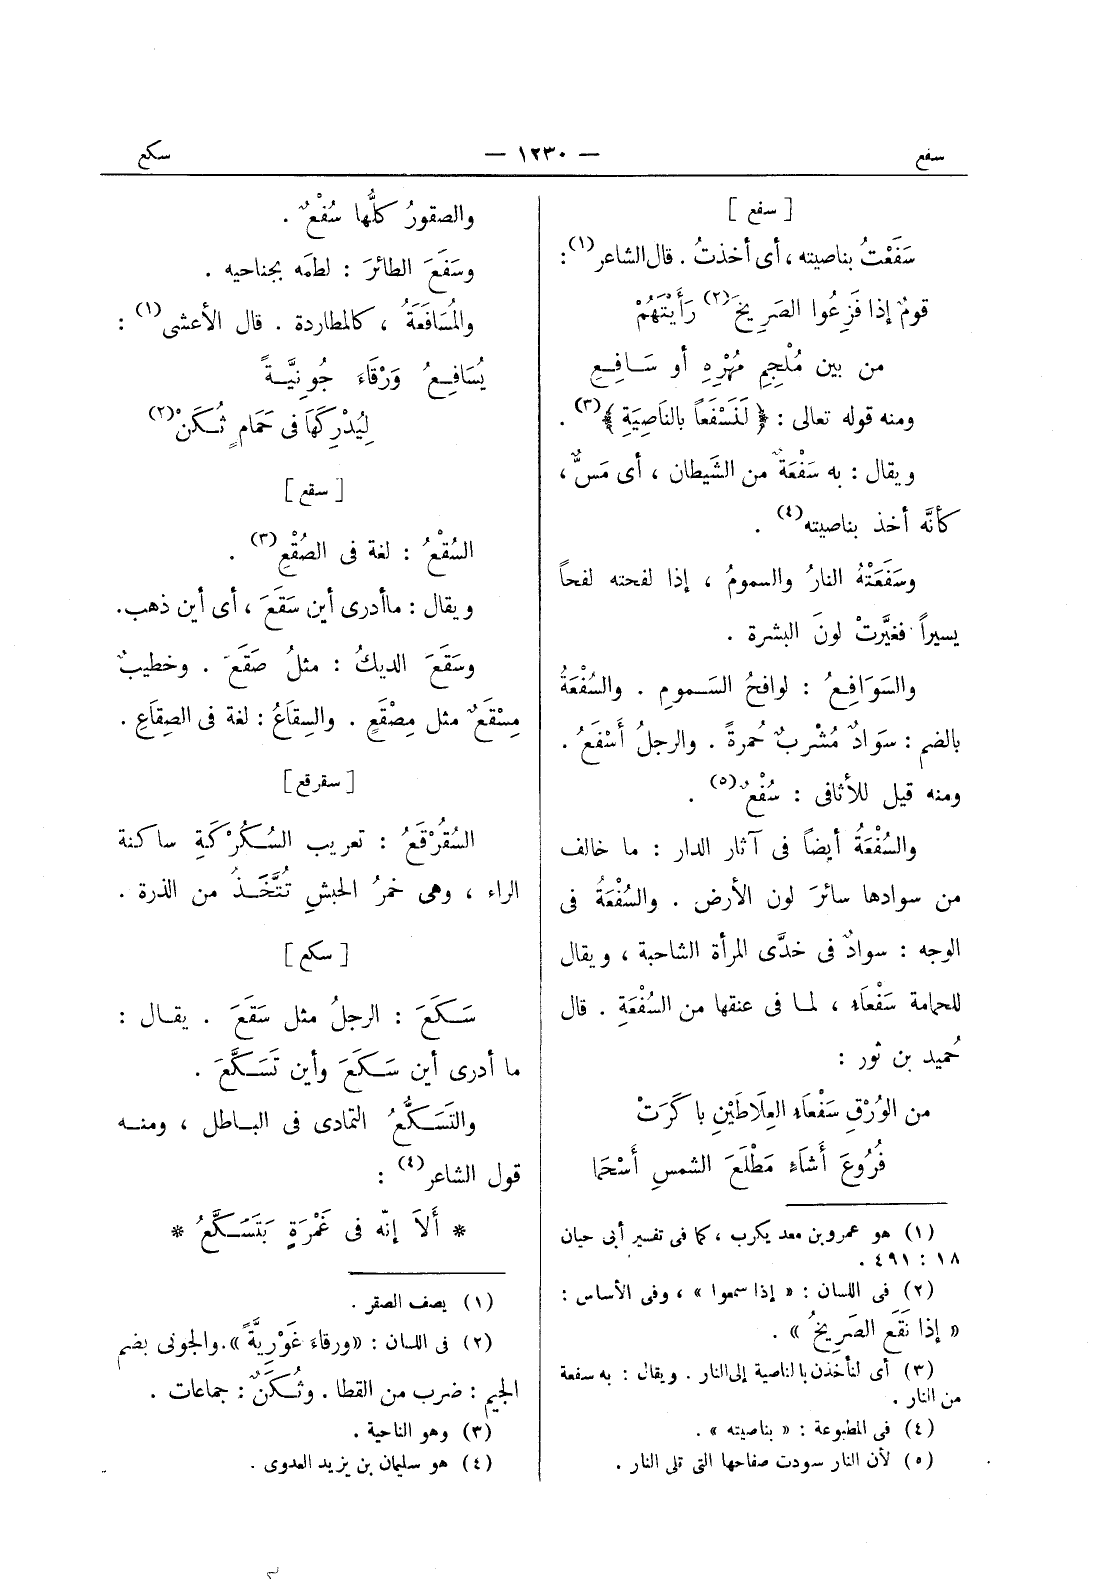 سفع
— ١٢٣٠ —
سكع
[ سفع ]
سَفَعْتُ بناصيته ، أى أخذتُ . قال الشاعر (١) :
قومٌ إذا فَزِعُوا الصَرِيخَ (٢) رَأَيْتَهُمْ
من بين مُلْجِمِ مُهْرِهِ أو سَافِعِ
ومنه قوله تعالى : ﴿ لَنَسْفَعاً بالنَاصِيَةِ ﴾ (٣) .
ويقال : به سَفْعَةٌ من الشَيطان ، أى مَسٌّ ،
كأنَّه أخذ بناصيته (٤) .
وسَفَعَتْهُ النارُ والسمومُ ، إذا لفحته لفحاً
يسيراً فغيَّرتْ لونَ البشرة .
والسَوَافِعُ : لوافحُ السَمومِ . والسُفْعَةُ
بالضم : سوَادٌ مُشْرَبٌ حُمرةً . والرجلُ أَسْفَعُ .
ومنه قيل للأثافى : سُفْعٌ (٥) .
والسُفْعَةُ أيضاً فى آثار الدار : ما خالف
من سوادها سائرَ لون الأرض . والسُفْعَةُ فى
الوجه : سوادٌ فى خدَّى المرأة الشاحبة ، ويقال
للحمامة سَفْعَاءُ ، لما فى عنقها من السُفْعَةِ . قال
حُميد بن ثور :
من الوُرْقِ سَفْعَاءُ العِلَاطَيْنِ باكَرَتْ
فُرُوعَ أَشَاءٍ مَطْلَعَ الشمسِ أَسْحَمَا
(١) هو عمرو بن معد يكرب ، كما فى تفسير أبى حيان
١٨ : ٤٩١ .
(٢) فى اللسان : « إذا سمعوا » ، وفى الأساس :
« إذا نَقَع الصَرِيخُ » .
(٣) أى لنأخذن بالناصية إلى النار . ويقال : به سفعة
من النار .
(٤) فى المطبوعة : « بناصيته » .
(٥) لأن النار سودت صفاحها التى تلى النار .
والصقورُ كلُّها سُفْعٌ .
وسَفَعَ الطائرَ : لطمَه بجناحيه .
والمُسَافَعَةُ ، كالمطاردة . قال الأعشى (١) :
يُسَافِعُ وَرْقَاءَ جُونِيَّةً
لِيُدْرِكَهَا فى حَمَامٍ ثُكَنْ (٢)
[ سقع ]
السُقْعُ : لغة فى الصُقْعِ (٣) .
ويقال : ما أدرى أين سَقَعَ ، أى أين ذهب .
وسَقَعَ الديكُ : مثلُ صَقَعَ . وخطيبٌ
مِسْقَعٌ مثل مِصْقَعٍ . والسِقاعُ : لغة فى الصِقاعِ .
[ سقرقع ]
السُقُرْقَعُ : تعريب السُكُرْكَةِ ساكنة
الراء ، وهى خمرُ الحبشِ تُتَّخَذُ من الذرة .
[ سكع ]
سَكَعَ : الرجلُ مثل سَقَعَ . يقال :
ما أدرى أين سَكَعَ وأين تَسَكَّعَ .
والتَسَكُّعُ التمادى فى الباطل ، ومنه
قول الشاعر (٤) :
* أَلاَ إنّه فى غَمْرَةٍ يَتَسَكَّعُ *
(١) يصف الصقر .
(٢) فى اللسان : « ورقاءَ غَوْرِيَّةً » . والجونى بضم
الجيم : ضرب من القطا . وثُكَنٌ : جماعات .
(٣) وهو الناحية .
(٤) هو سليمان بن يزيد العدوى .